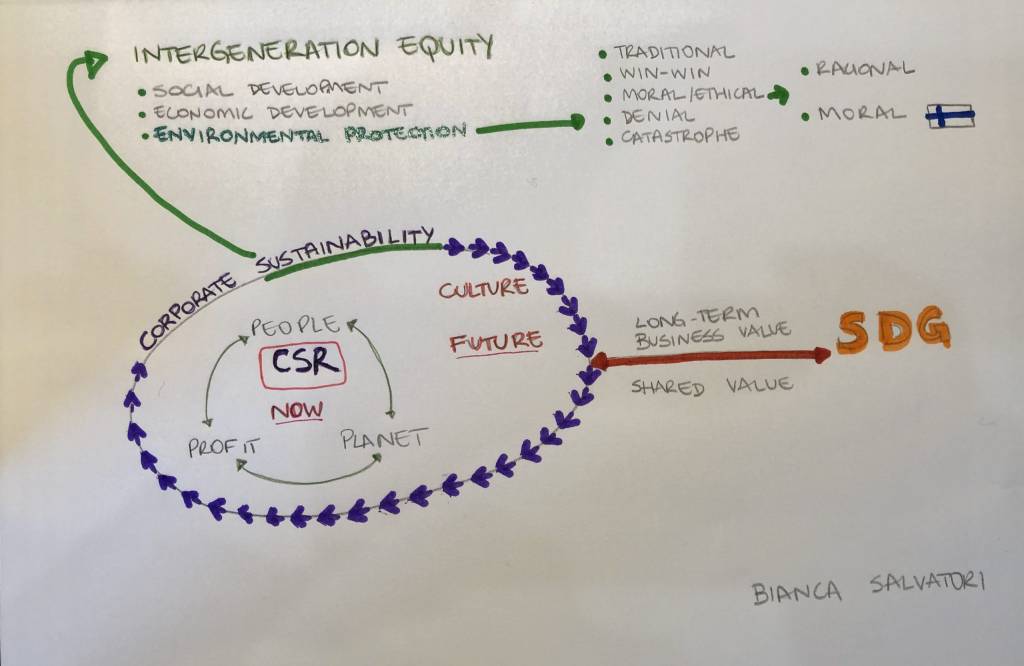 INTERGENERATION EQUITY
• SOCIAL DEVELOPMENT
• ECONOMIC DEVELOPMENT
• ENVIRONMENTAL PROTECTION
• TRADITIONAL
• WIN-WIN
• MORAL/ETHICAL
• DENIAL
• CATASTROPHE
• RACIONAL
• MORAL
CORPORATE SUSTAINABILITY
CULTURE
FUTURE
PEOPLE
CSR
NOW
PROFIT
PLANET
LONG-TERM
BUSINESS VALUE
SHARED VALUE
SDG
BIANCA SALVATORI